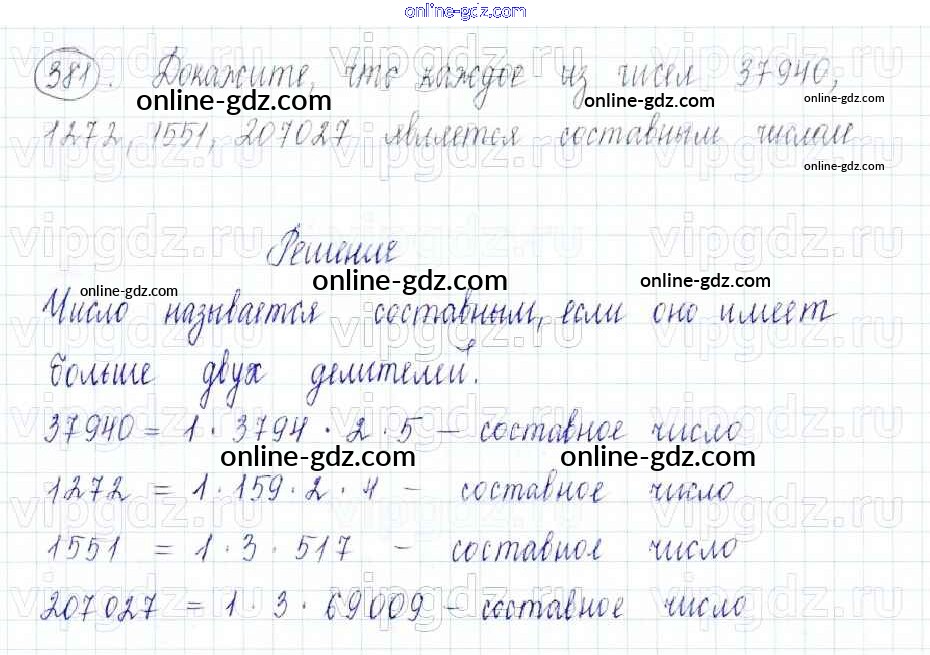 online-gdz.com
381. Докажите, что каждое из чисел 37940,
online-gdz.com online-gdz.com online-gdz.com
1272, 1551, 207027 является составным числом
online-gdz.com
vipgdz.ru vipgdz.ru vipgdz.ru
Решение
online-gdz.com online-gdz.com online-gdz.com
Число называется составным, если оно имеет
больше двух делителей.
37940 = 1 · 3794 · 2 · 5 – составное число
online-gdz.com online-gdz.com
1272 = 1 · 159 · 2 · 4 – составное число
1551 = 1 · 3 · 517 – составное число
207027 = 1 · 3 · 69009 – составное число